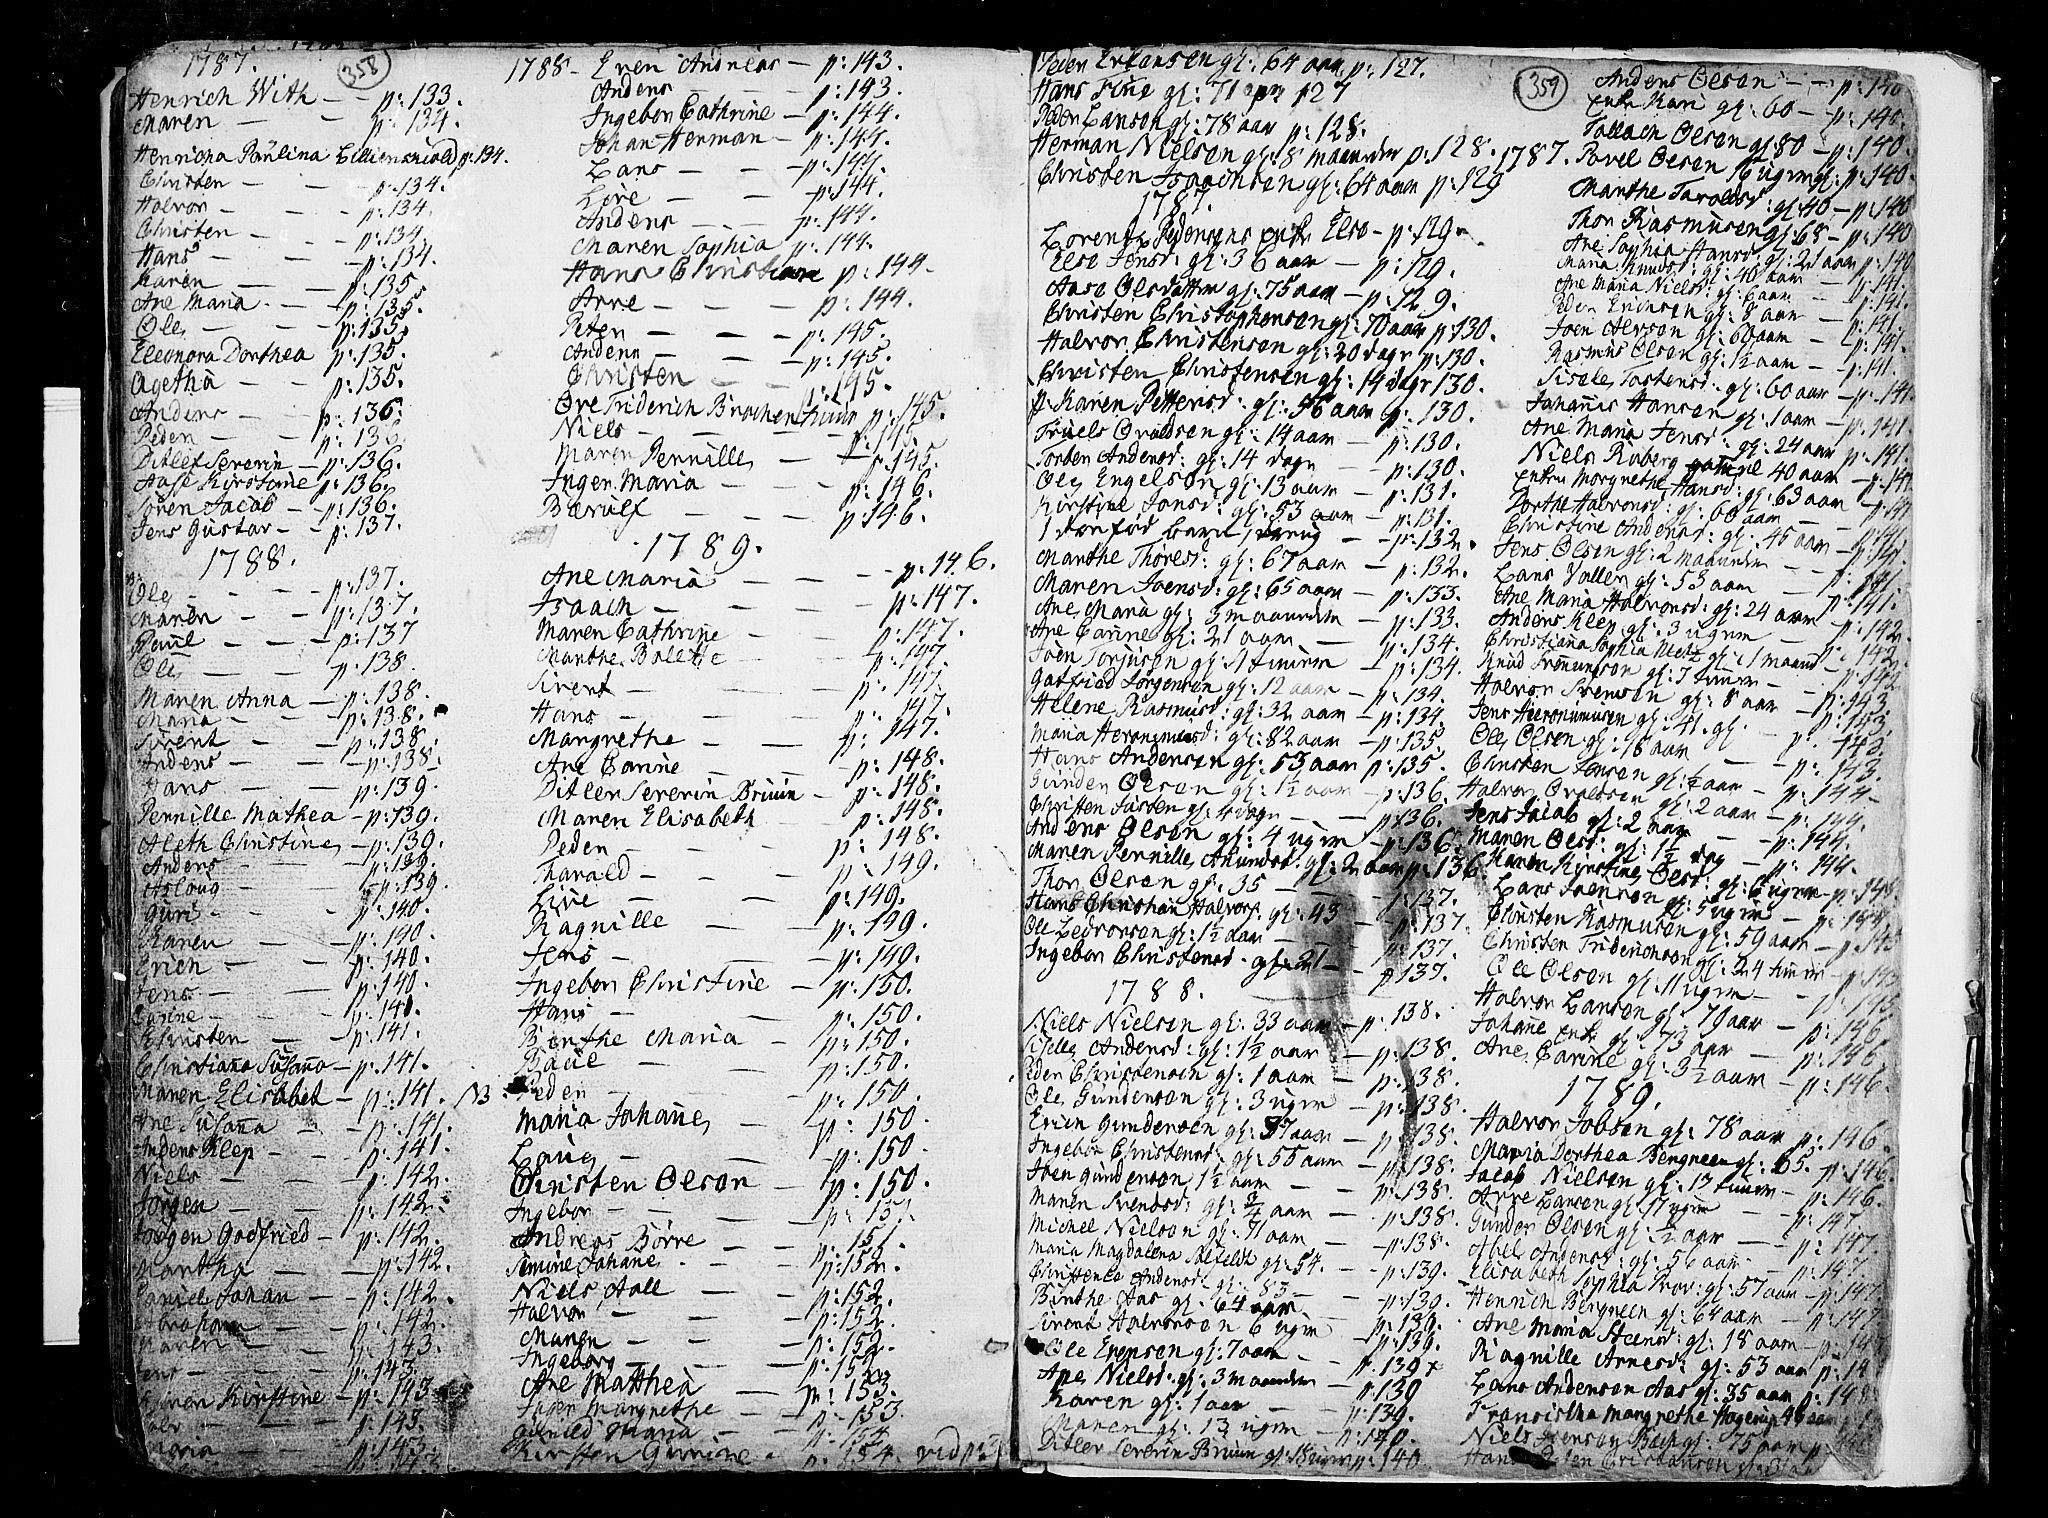 358
1787.
Henrich With - - p: 133.
Maren - - p: 134.
Henricha Paulina Lillienskiold p: 134.
Christen - - - p: 134.
Halvor - - - p: 134.
Christen - - - p: 134.
Hans - - - p: 134.
Karen - - - p: 135
Ane Maria - - p: 135.
Ole - - - p: 135.
Eleonora Dorthea p: 135.
Agetha - - p: 135.
Anders - - p: 136.
Peder - - - p: 136.
Ditlef Severin - p: 136.
Aase Kirstine p: 136.
Søren Jacob - p: 136.
Jens Gustav - p: 137.
1788.
Ole - - - p: 137.
Maren - - - p: 137.
Paul - - - p: 137
Ole - - - p: 138.
Maren Anna - - p: 138.
Maria - - - p: 138.
Sivert - - - p: 138.
Anders - - - p: 138.
Hans - - - p: 139.
Pernille Mathea - p: 139.
Aleth Christine - p: 139.
Anders - - - p: 139.
Asloug - - - p: 139.
Guri - - - p: 140.
Karen - - - p: 140.
Erich - - - p: 140.
Jens - - - p: 140.
Carine - - - p: 140.
Christen - - p: 141.
Christiana Susana - p: 141.
Maren Elisabet - p: 141.
Ane Susana - - p: 141.
Anders Klep - - p: 141
Niels - - - p: 142.
Jørgen - - - p: 142.
Jørgen Godfried - p: 142.
Martha - - - p: 142.
Daniel Johan - - p: 142.
Abraham - - - p: 142.
Karen - - - p: 143.
Jens - - - p: 143.
Kirstine - p: 143
p: 143.
Maria - - p: 143.
1788 - Even Andreas - p: 143.
Anders - - - p: 143.
Ingebor Cathrine - p: 144.
Johan Herman - p: 144.
Lars - - - p: 144.
Live - - - p: 144.
Anders - - - p: 144.
Maren Sophia p: 144.
Hans Christian p: 144.
Arne - - - p: 144.
Peter - - - p: 145.
Anders - - - p: 145.
Christen - - p: 145.
Ove Friderich p: 145.
Niels - - - p: 145.
Maren Pernille - p: 145.
Inger Maria - - p: 146.
Bærulf - - - p: 146.
1789.
Ane Maria - - - p: 146.
Isaach - - - p: 147.
Maren Cathrine - p: 147.
Marthe Bolette - p: 147.
Sivert - - - p: 147.
Hans - - - p: 147.
Margrethe - - p: 147.
Ane Carine - - p: 148.
Ditlev Severin Bruun - p: 148.
Maren Elisabeth - p: 148.
Peder - - - p: 148.
Tharald - - - p: 149.
Live - - - p: 149.
Ragnille - - p: 149.
Jens - - - p: 149.
Ingebor Christine - p: 150.
Hans - - - p: 150.
Birthe Maria - p: 150.
Baue - - - p: 150.
NB Peder - - - p: 150.
Maria Johanne - p: 150
Laug - - - p: 150
Christen Olson - p: 150.
Ingebor - - - p: 151.
Andreas Børre - p: 151.
Simine Johanne - p: 152.
Niels Aall - - p: 152.
Halvor - - - p: 152.
Maren - - - p: 152.
Ingeborg - - p: 152.
Ane Matthea - p: 153.
Inger Margrethe - p: 153.
Maria - - p: 154.
Kirsten Gurine - p: 154. vid p:
359
Peder Erlansen gl: 64 aar p: 127.
Hans Fine gl: 71 aar p 127
Peder Larson gl: 78 aar p: 128.
Herman Nielsen gl: 8 maaneder p: 128.
Christen Isaachsen gl: 64 aar p: 129
1787.
Lorentz Pedersens enke Else - p: 129.
Else Jensd: gl: 36 aar - p: 129.
Aase Olsdatter gl: 75 aar - p: 129.
Christen Christophersen gl: 70 aar p: 130.
Halvor Christensen gl: 20 dage p: 130.
Christen Christensen gl: 14 dage 130.
Karen Pettersd: gl: 56 aar p: 130.
Truels Ovaldsen gl: 14 aar - p: 130.
Torber Andersd: gl: 14 dage - p: 130.
Ole Engelson gl: 13 aar - p: 131.
Kirstine Jonsd: gl: 53 aar - p: 131.
1 dødfød Barn - p: 132.
Marthe Thoresd: gl: 67 aar - p: 132.
Maren Joensd: gl: 65 aar - p: 133.
Ane Maria gl: 3 maaneder - p: 133.
Ane Carine gl: 21 aar - p: 134.
Joen Torjusen gl: 1 time - p: 134.
Gotfried Jørgensen gl: 12 aar - p: 134.
Helene Rasmusd: gl: 32 aar - p: 134.
Maria Heronimusd: gl: 82 aar - p: 135.
Hans Andersen gl: 53 aar p: 135.
Gunder Olsen gl: 1½ aar - p: 136.
Christen Justsen gl: 4 dage - p: 136.
Anders Olsen gl: 4 uger - p: 136.
Maren Pernille Amundsd: gl: 2 aar p: 136.
Thor Olson gl: 35 - - p: 137.
Hans Christian Halvors: gl: 43 - p: 137.
Ole Ledvorsen gl: 1½ aar - - p: 137.
Ingebor Christensd. gl: 21 - - p: 137.
1788.
Niels Nielsen gl: 33 aar - p: 138.
Siselle Andersd: gl: 1½ aar - p: 138.
Peder Christensen gl: 1 aar - p: 138.
Ole Gundersen gl: 3 uger - p: 138.
Erich Gundersen gl: 37 aar - p: 138.
Ingebor Christensd: gl: 55 aar - p: 138.
Joen Gunderson 1½ aar - - p: 138.
Maren Svendsd: gl: ¾ aar - p: 138.
Michel Nielson gl: 71 aar - p: 138.
Maria Magdalena gl: 54. - p: 139.
Christence Andersd: gl: 83 - p: 139.
Birthe Aas gl: 64 aar - p: 139.
Sivert Halvorsen 6 uger - p: 139.
Ole Evensen gl: 7 aar - p: 139
Ane Nielsd: gl: 3 maaneder - p: 139
Karen gl: 1 aar - - p: 139.
Maren gl: 13 uger - - p: 140.
Ditlev Severin Bruun gl: 18 uger p: 140
Anders Olsen - - p: 140
Enke Kari gl: 60 - p: 140.
Tallach Olsen gl: 80 - p: 140.
1787. Povel Olsen 16 uger gl: p: 140.
Marthe Taraldsd: gl: 40 - p: 140
Thor Rasmusen gl: 68 - p: 140
Ane Sophia Hansd: gl: 21 aar p: 140
Maria Knudsd: gl: 40 aar - p: 141.
Ane Maria Nielsd: gl: 6 aar - p: 141.
Peder Erichsen gl: 8 aar - p: 141.
Joen Alvson gl: 60 aar - p: 141.
Rasmus Olsen gl: 1½ aar - p: 141.
Sisele Torstensd: gl: 60 aar - p: 141
Johannes Hansen gl: 1 aar - p: 141.
Ane Maria Jensd: gl: 24 aar p: 141.
Niels Roberg 40 aar - p: 141
Enke Margrethe Hansd: gl: 63 aar - p: 141
Dorthe Halvorsd: gl: 60 aar - - p: 141.
Christine Andersd: gl: 45 aar - p: 141.
Jens Olsen gl: 2 maaneder - - p: 141.
Lars Valler gl: 53 aar - p: 141.
Ane Maria Halvorsd: gl: 24 aar p: 141.
Anders Klep gl: 3 uger - p: 142.
Christiana Sophia gl: 1 maaned p: 142.
Knud Tremundson gl: 7 timer - p: 142
Halvor Svensen gl: 8 aar - p: 143.
Jens Hieronimusen gl: 41. gl. - p: 153.
Ole Olsen gl: 18 aar - p: 143.
Christen Jensen gl: ½ aar - p: 143.
Halvor Ovaldsen gl: 2 aar - p: 144.
Jens Jacob gl: 2 aar - - p: 144.
Maren Olsd: gl: 1½ dag - p: 144.
Maren Kirstine Olsd: gl: 6 uger - p: 145.
Lars Joensen gl: 5 uger - p: 145
Christen Rasmusen gl: 59 aar - p: 145
Christen Friderichsen gl: 24 timer - p: 145
Ole Olsen gl: 11 uger - - p: 145
Halvor Larsen gl: 79 aar - p: 146
Johane enke gl: 73 aar - p: 146.
Ane Carine gl: 3½ aar - p: 146
1789.
Halvor Jobsen gl: 78 aar p: 146.
Maria Dorthea Bergreen gl: 65. p: 146.
Jacob Nielsen gl: 13 timer - p: 146
Arne Larsen gl: 17 uger - p: 147.
Gunder Olsen gl: ½ aar - p: 147.
Abel Andersd: gl: 56 aar - p: 147
Elisabeth Sophia Prov: gl: 57 aar - p: 147
Henrich Bergreen gl: 64 aar - p: 147.
Ane Maria Steensd: gl: 18 aar - p: 14
Ragnille Arnesd: gl: 53 aar p: 14
Lars Anderson Aas gl: 35 aar p: 148
Francisca Margrethe Hagerup 46 aar
Niels Jenson Bach gl: 75 aar p
Hans Peter Christensen gl: 3